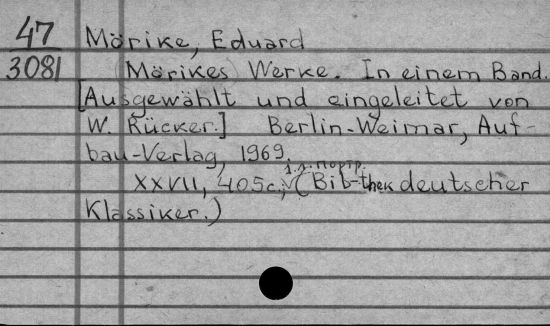 47 Mörike, Eduard
3081 (Mörikes) Werke. In einem Band.
[Ausgewählt und eingeleitet von
W. Rücker.] Berlin-Weimar, Auf-
bau-Verlag, 1969.
1 л. портр.
XXVII, 405 с.; (Bib-thek deutscher
Klassiker.)